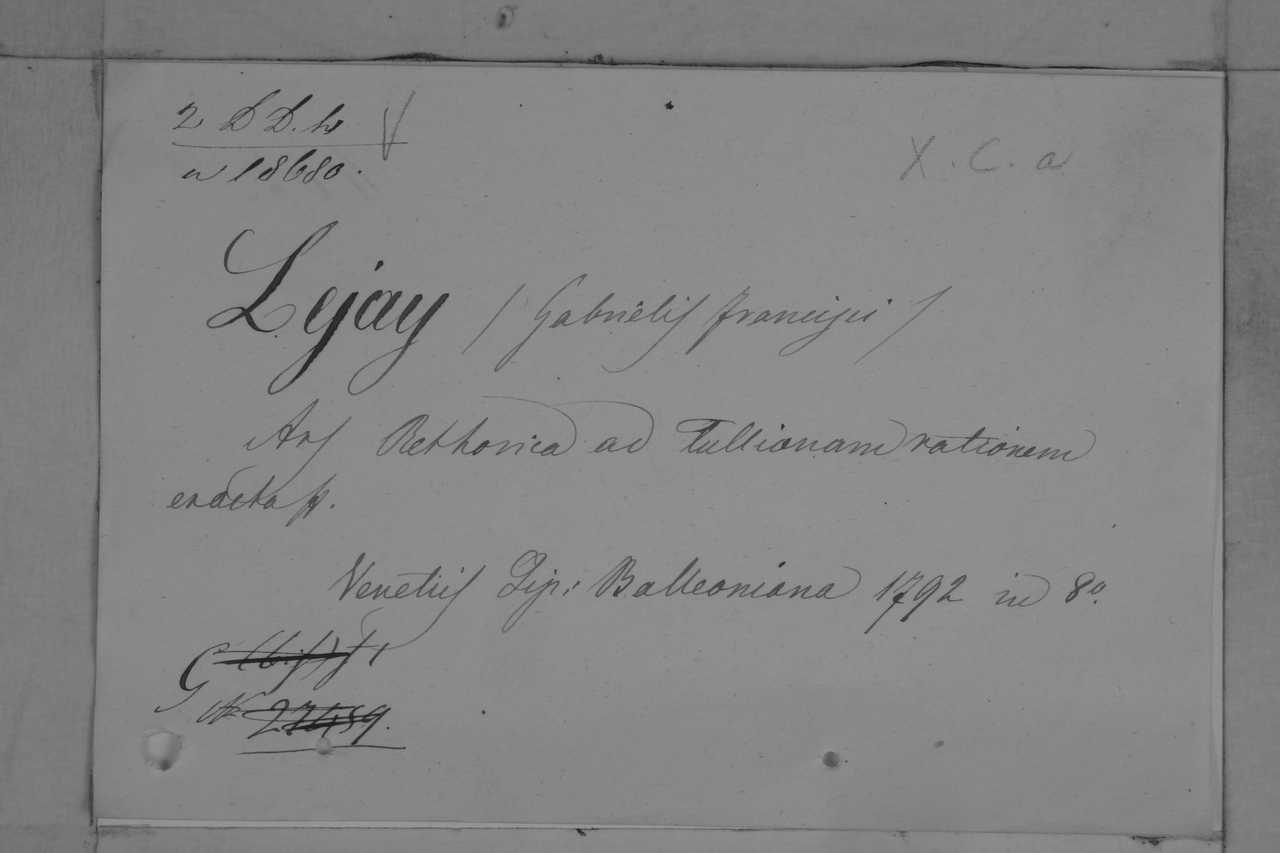 2 D D. h
n 18680.
X. C. a
Lejay / Gabrielis Francisci /
Ars Rethorica ad Tullianam rationem
exacta p.
Venetiis Tip: Balleoniana 1792 in 8o.
G (bis) f 1
No 27459.